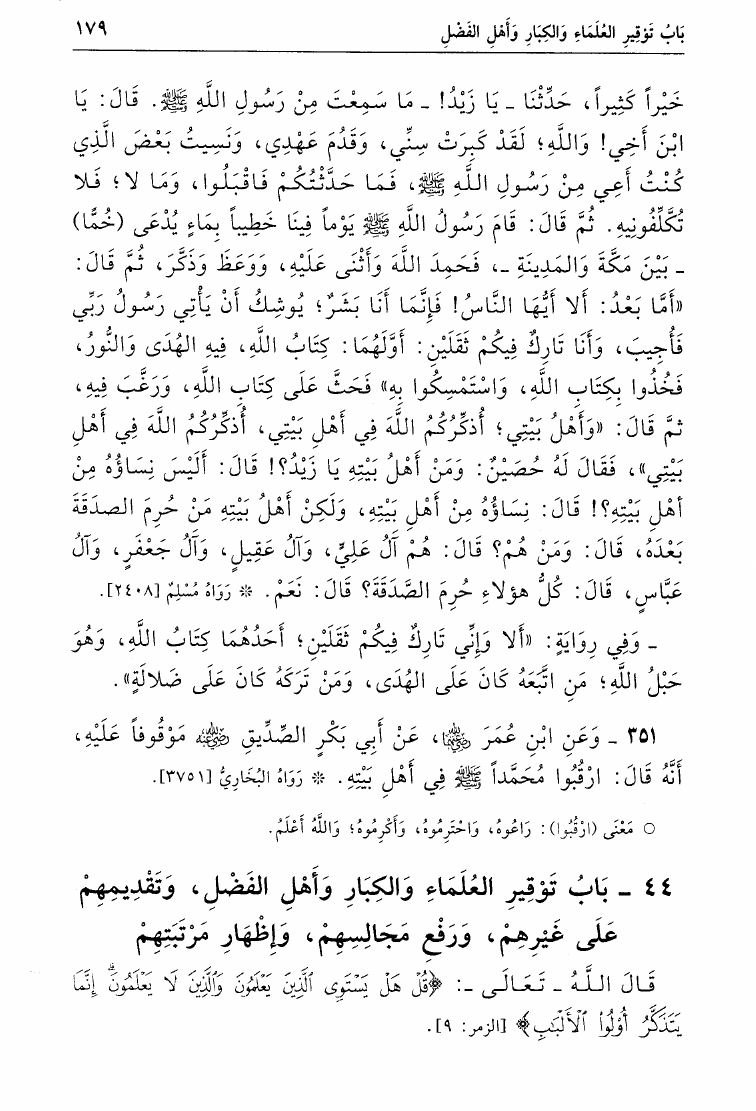 بَابُ تَوْقِيرِ العُلَمَاءِ وَالكِبَارِ وَأَهْلِ الفَضْلِ ١٧٩
خَيْراً كَثِيراً، حَدِّثْنَا ـ يَا زَيْدُ! ـ مَا سَمِعْتَ مِنْ رَسُولِ اللَّهِ ﷺ. قَالَ: يَا
ابْنَ أَخِي! وَاللَّهِ؛ لَقَدْ كَبِرَتْ سِنِّي، وَقَدُمَ عَهْدِي، وَنَسِيتُ بَعْضَ الَّذِي
كُنْتُ أَعِي مِنْ رَسُولِ اللَّهِ ﷺ، فَمَا حَدَّثْتُكُمْ فَاقْبَلُوا، وَمَا لا؛ فَلا
تُكَلِّفُونِيهِ. ثُمَّ قَالَ: قَامَ رَسُولُ اللَّهِ ﷺ يَوْماً فِينَا خَطِيباً بِمَاءٍ يُدْعَى (خُمًّا)
ـ بَيْنَ مَكَّةَ وَالمَدِينَةِ ـ، فَحَمِدَ اللَّهَ وَأَثْنَى عَلَيْهِ، وَوَعَظَ وَذَكَّرَ، ثُمَّ قَالَ:
«أَمَّا بَعْدُ: أَلا أَيُّهَا النَّاسُ! فَإِنَّمَا أَنَا بَشَرٌ؛ يُوشِكُ أَنْ يَأْتِي رَسُولُ رَبِّي
فَأُجِيبَ، وَأَنَا تَارِكٌ فِيكُمْ ثَقَلَيْنِ: أَوَّلُهُمَا: كِتَابُ اللَّهِ، فِيهِ الهُدَى وَالنُّورُ،
فَخُذُوا بِكِتَابِ اللَّهِ، وَاسْتَمْسِكُوا بِهِ» فَحَثَّ عَلَى كِتَابِ اللَّهِ، وَرَغَّبَ فِيهِ،
ثمَّ قَالَ: «وَأَهْلُ بَيْتِي؛ أُذكِّرُكُمُ اللَّهَ فِي أَهْلِ بَيْتِي، أُذكِّرُكُمُ اللَّهَ فِي أَهْلِ
بَيْتِي»، فَقَالَ لَهُ حُصَيْنٌ: وَمَنْ أَهْلُ بَيْتِهِ يَا زَيْدُ؟! قَالَ: أَلَيْسَ نِسَاؤُهُ مِنْ
أَهْلِ بَيْتِهِ؟! قَالَ: نِسَاؤُهُ مِنْ أَهْلِ بَيْتِهِ، وَلَكِنْ أَهْلُ بَيْتِهِ مَنْ حُرِمَ الصدَقَةَ
بَعْدَهُ، قَالَ: وَمَنْ هُمْ؟ قَالَ: هُمْ آلُ عَلِيٍّ، وَآلُ عَقِيلٍ، وَآلُ جَعْفَرٍ، وَآلُ
عَبَّاسٍ، قَالَ: كُلُّ هؤلاءِ حُرِمَ الصَّدَقَةَ؟ قَالَ: نَعَمْ. * رَوَاهُ مُسْلِمٌ [٢٤٠٨].
ـ وَفِي رِوَايَةٍ: «أَلا وَإِنِّي تَارِكٌ فِيكُمْ ثَقَلَيْنِ؛ أَحَدُهُمَا كِتَابُ اللَّهِ، وَهُوَ
حَبْلُ اللَّهِ؛ مَنِ اتَّبَعَهُ كَانَ عَلَى الهُدَى، وَمَنْ تَرَكَهُ كَانَ عَلَى ضَلالَةٍ».
٣٥١ ـ وَعَنِ ابْنِ عُمَرَ رضي الله عنهما، عَنْ أَبِي بَكْرٍ الصِّدِّيقِ رضي الله عنه مَوْقُوفاً عَلَيْهِ،
أَنَّهُ قَالَ: ارْقُبُوا مُحَمَّداً ﷺ فِي أَهْلِ بَيْتِهِ. * رَوَاهُ البُخَارِيُّ [٣٧٥١].
○ مَعْنَى (ارْقُبُوا): رَاعُوهُ، وَاحْتَرِمُوهُ، وَأَكْرِمُوهُ؛ وَاللَّهُ أَعْلَمُ.
٤٤ ـ بَابُ تَوْقِيرِ العُلَمَاءِ وَالكِبَارِ وَأَهْلِ الفَضْلِ، وَتَقْدِيمِهِمْ
عَلَى غَيْرِهِمْ، وَرَفْعِ مَجَالِسِهِمْ، وَإِظْهَارِ مَرْتَبَتِهِمْ
قَالَ اللَّهُ ـ تَعَالَى ـ: ﴿قُلْ هَلْ يَسْتَوِى ٱلَّذِينَ يَعْلَمُونَ وَٱلَّذِينَ لَا يَعْلَمُونَۗ إِنَّمَا
يَتَذَكَّرُ أُوْلُواْ ٱلْأَلْبَٰبِ﴾ [الزمر: ٩].